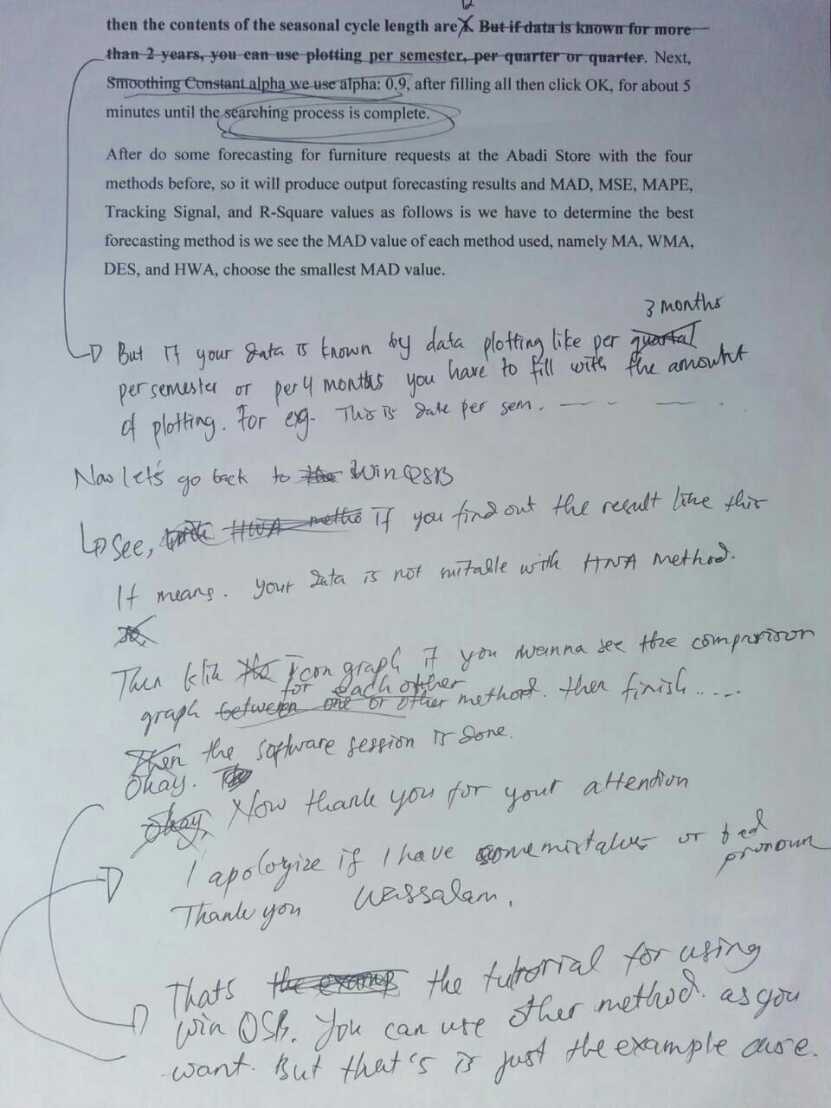 12
then the contents of the seasonal cycle length are 1. But if data is known for more
than 2 years, you can use plotting per semester, per quarter or quarter. Next,
Smoothing Constant alpha we use alpha: 0.9, after filling all then click OK, for about 5
minutes until the searching process is complete.
After do some forecasting for furniture requests at the Abadi Store with the four
methods before, so it will produce output forecasting results and MAD, MSE, MAPE,
Tracking Signal, and R-Square values as follows is we have to determine the best
forecasting method is we see the MAD value of each method used, namely MA, WMA,
DES, and HWA, choose the smallest MAD value.
3 months
But if your data is known by data plotting like per quartal
per semester or per 4 months you have to fill with the amount
of plotting. For eg. This is date per sem.
Now let's go back to the WinQSB
See, HWA metho if you find out the result like this
It means. your data is not suitable with HWA method.
Then klik the Icon graph if you wanna see the comparison
for each other
graph between one or other method. then finish.....
Then the software session is done.
Okay.
Okay, Now thank you for your attention
I apologize if I have some mistakes or bad
pronoun
Thank you Wassalam.
Thats the examp the tutorial for using
Win QSB. You can use other method. as you
want. But that's is just the example case.